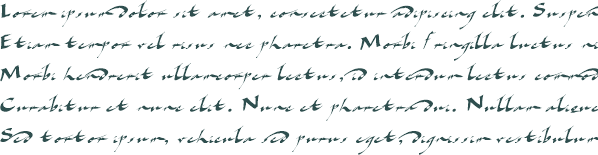 Lorem ipsum dolor sit amet, consectetur adipiscing elit.
Etiam tempor vel risus nec pharetra. Morbi fringilla luctus
Morbi hendrerit ullamcorper lectus, id interdum lectus
Curabitur et nunc elit. Nunc et pharetra dui. Nullam
Sed tortor ipsum, vehicula sed purus eget, dignissim vestibulum